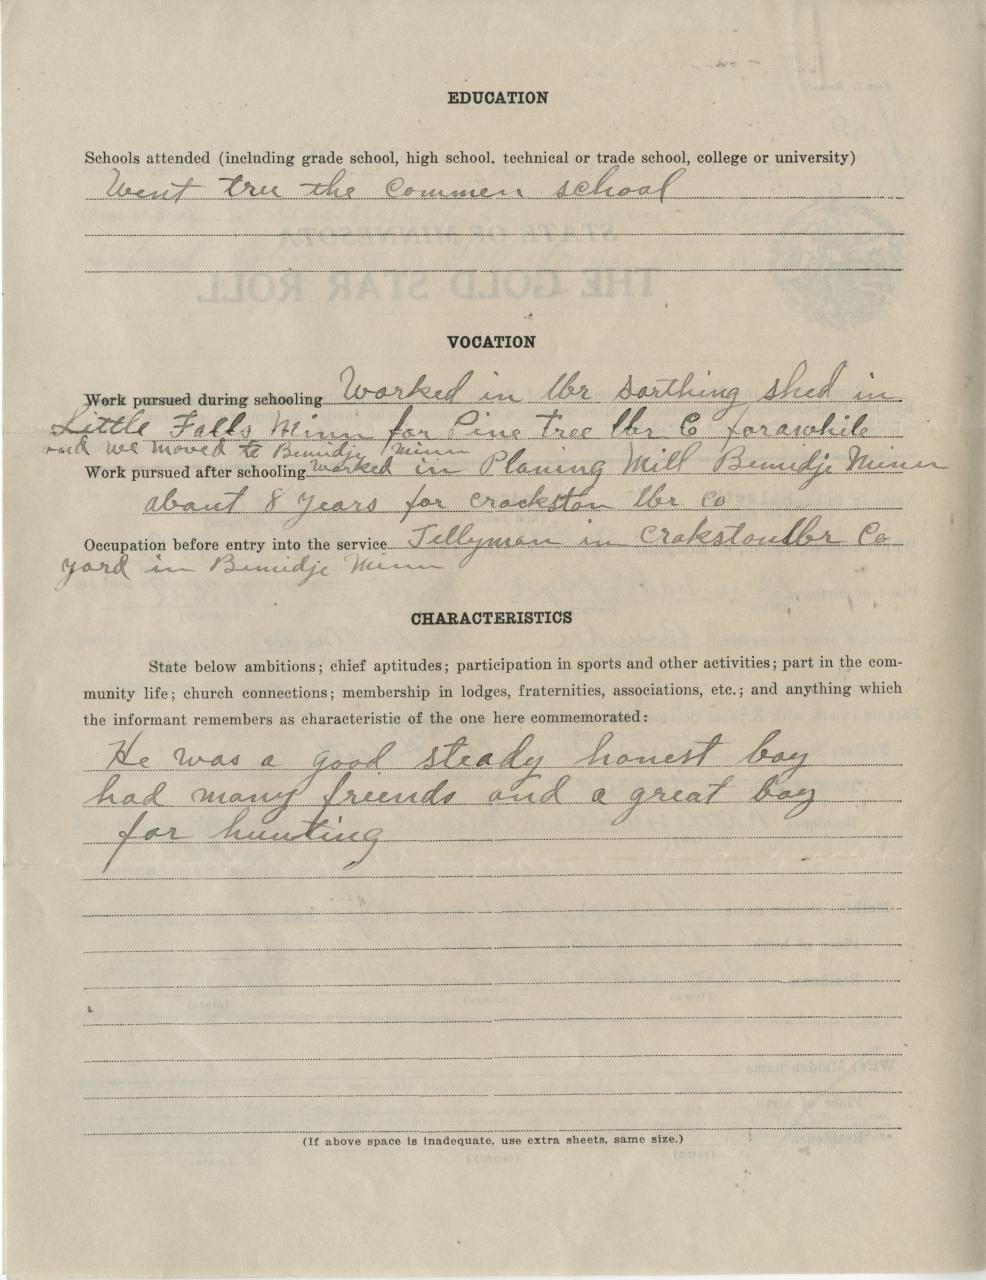 EDUCATION
Schools attended (including grade school, high school. technical or trade school, college or university)
Went tru the commen school
VOCATION
Work pursued during schooling Worked in lbr sorthing shed in
Little Falls Minn for Pine tree lbr C forawhile
and we moved to Bemidje Minn
Work pursued after schooling worked in Planing Mill Bemidje Minn
about 8 years for crockston lbr co
Occupation before entry into the service Tellyman in crokston lbr Co
yard in Bemidje Minn
CHARACTERISTICS
State below ambitions; chief aptitudes; participation in sports and other activities; part in the com-
munity life; church connections; membership in lodges, fraternities, associations, etc.; and anything which
the informant remembers as characteristic of the one here commemorated:
He was a good steady honest boy
had many friends and a great boy
for hunting
(If above space is inadequate, use extra sheets, same size.)